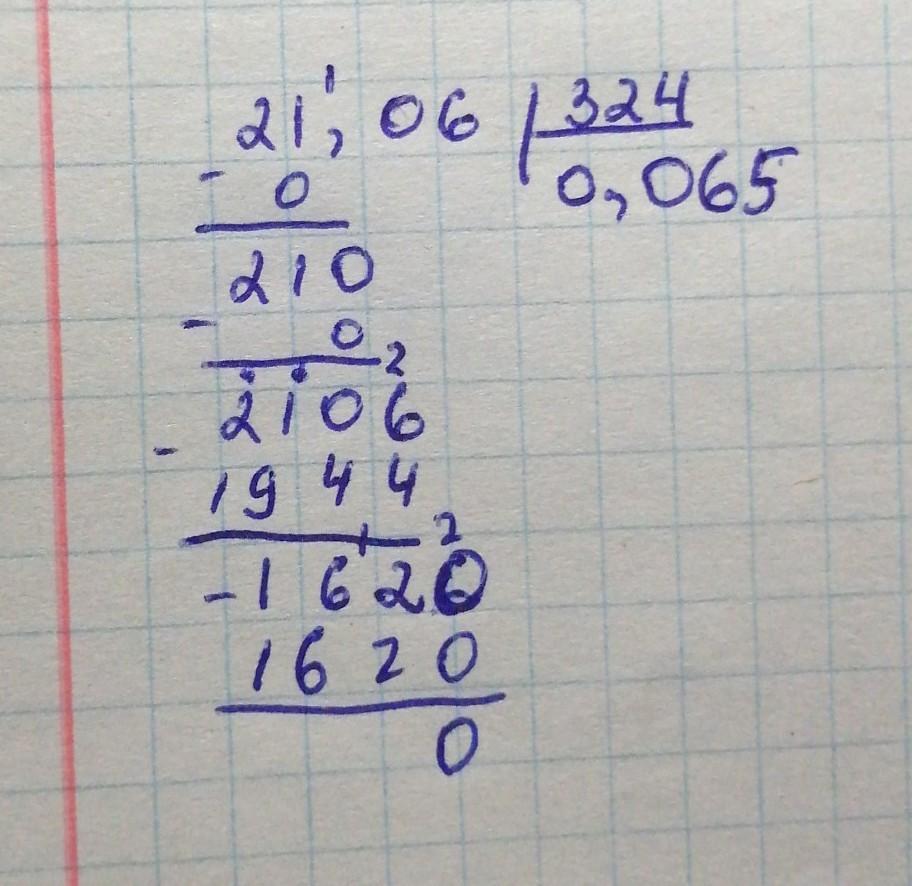 21,06 | 324
- 0 0,065
210
- 0
2106
- 1944
- 1620
1620
0